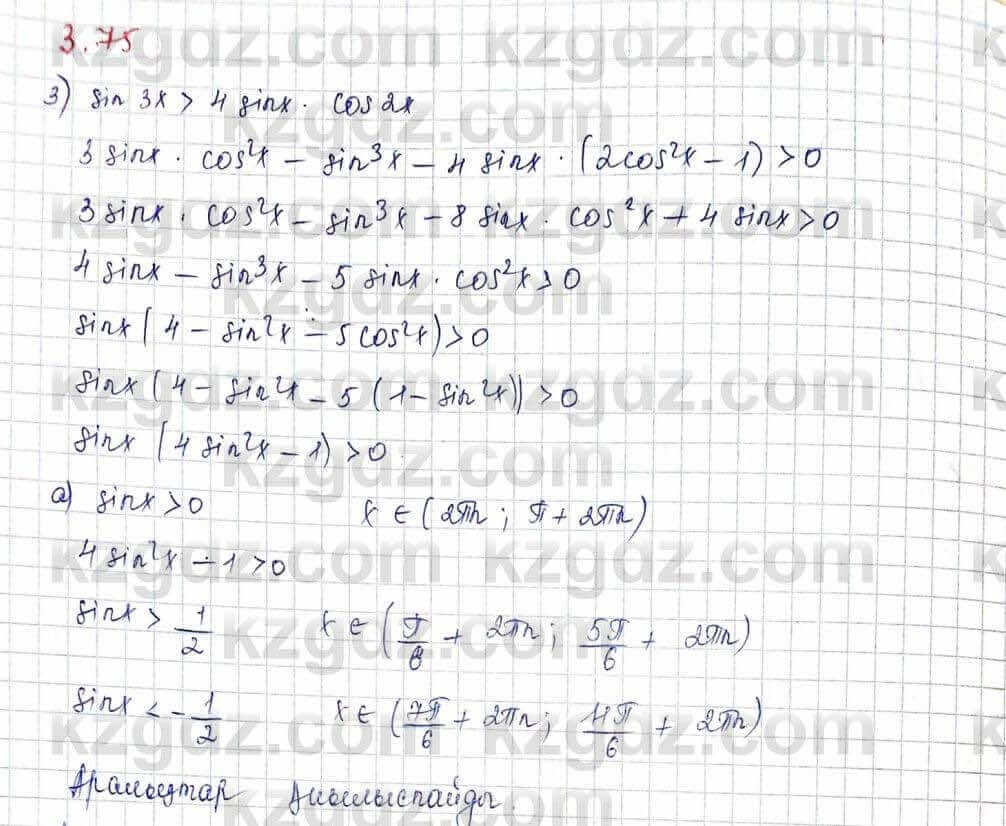 3.75
3) sin 3x > 4 sinx · cos 2x
3 sinx · cos²x − sin³x − 4 sinx · (2cos²x − 1) > 0
3 sinx · cos²x − sin³x − 8 sinx · cos²x + 4 sinx > 0
4 sinx − sin³x − 5 sinx · cos²x > 0
sinx (4 − sin²x − 5cos²x) > 0
sinx (4 − sin²x − 5 (1 − sin²x)) > 0
sinx (4 sin²x − 1) > 0
a) sinx > 0 x ∈ (2πn ; π + 2πn)
4 sin²x − 1 > 0
sinx > 1/2 x ∈ (π/6 + 2πn ; 5π/6 + 2πn)
sinx < −1/2 x ∈ (7π/6 + 2πn ; 11π/6 + 2πn)
Аралықтар қиылыспайды.
kzgdz.com